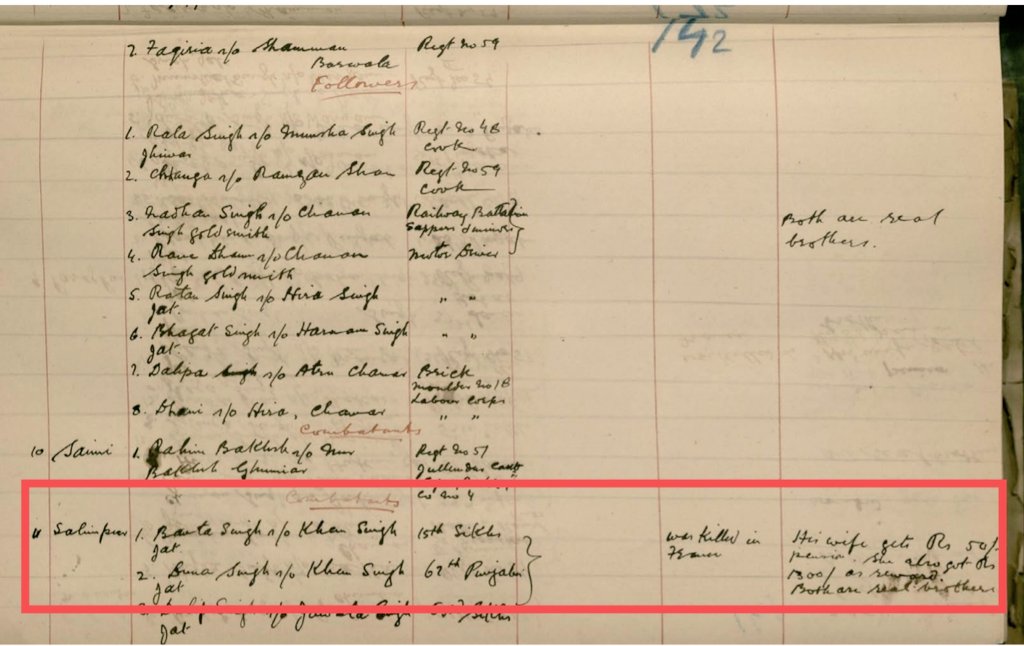 142
2. Faqiria s/o Shamman Regt No 59
Barwala
Followers
1. Rala Singh s/o Munsha Singh Regt No 48
Jhiwar cook
2. s/o Ramzan Shan Regt No 59
cook
3. Singh s/o Chanan Railway Battalion Both are real
Singh goldsmith Sappers brothers.
4. s/o Chanan Motor Driver
Singh goldsmith
5. Ratan Singh s/o Hira Singh " "
Jat.
6. Bhagat Singh s/o Harnam Singh " "
Jat.
7. Dalipa s/o Atra Chamar Brick
moulder No 18
8. s/o Hira, Chamar Labour Corps
" "
Combatants
10 1. Rahim Bakhsh s/o Nur Regt No 51
Bakhsh Ghumiar Jullundur Cantt
Combatants Co No 4
11 Salimpur 1. Banta Singh s/o Khan Singh 15th Sikhs was killed in His wife gets Rs 50/-
Jat. France pension. She also got Rs
2. Singh s/o Khan Singh 62nd Punjabi 1300/- as reward.
Jat Both are real brothers
Singh s/o Singh Sikhs
Jat